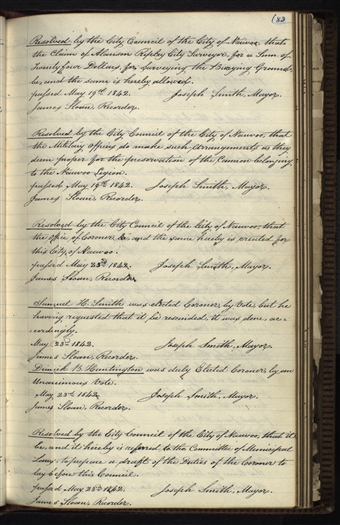 (83
Resolved by the City Council of the City of Nauvoo, that
the Claim of Alanson Ripley City Surveyor, for a Sum of
Twenty four Dollars, for Surveying the Burying Ground
be, and the same is hereby allowed.
passed May 19th 1842. Joseph Smith, Mayor.
James Sloan, Recorder.
Resolved by the City Council of the City of Nauvoo, that
the Military Officers do make such Arrangements as they
deem proper for the preservation of the Cannon belonging
to the Nauvoo Legion.
passed May 19th 1842. Joseph Smith, Mayor.
James Sloan, Recorder.
Resolved by the City Council of the City of Nauvoo, that
the Office of Coroner be, and the same hereby is created for
this City of Nauvoo.
passed May 23d 1842. Joseph Smith, Mayor.
James Sloan, Recorder
Samuel H. Smith was elected Coroner by Vote, but he
having requested that it be rescinded, it was done ac-
-cordingly.
May 23d 1842. Joseph Smith, Mayor.
James Sloan, Recorder.
Dimick B. Huntington was duly Elected Coroner by an
Unanimous Vote.
May 23d 1842. Joseph Smith, Mayor.
James Sloan, Recorder.
Resolved by the City Council of the City of Nauvoo, that it
be, and it hereby is referred to the Committee of Municipal
Laws, to prepare a draft of the Duties of the Coroner to
lay before this Council.
passed May 23d 1842. Joseph Smith, Mayor.
James Sloan, Recorder.